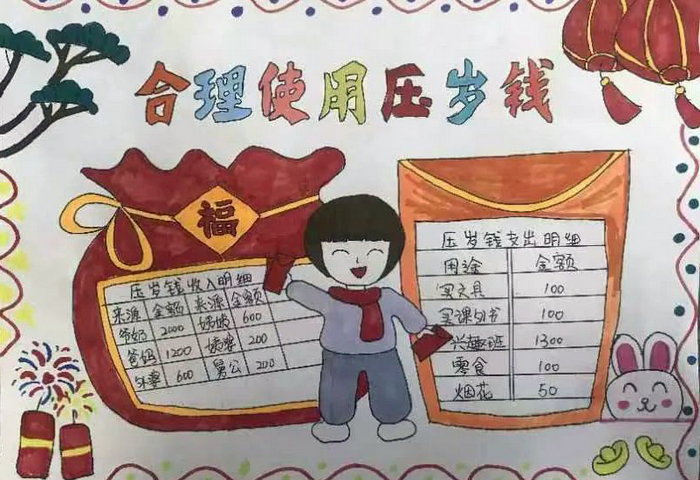 合理使用压岁钱
福
压岁钱收入明细
来源 金额 来源 金额
爷奶 2000 姑姑 600
爸妈 1200 姨 200
外婆 600 舅公 200
压岁钱支出明细
用途 金额
买文具 100
买课外书 100
兴趣班 1300
零食 100
烟花 50